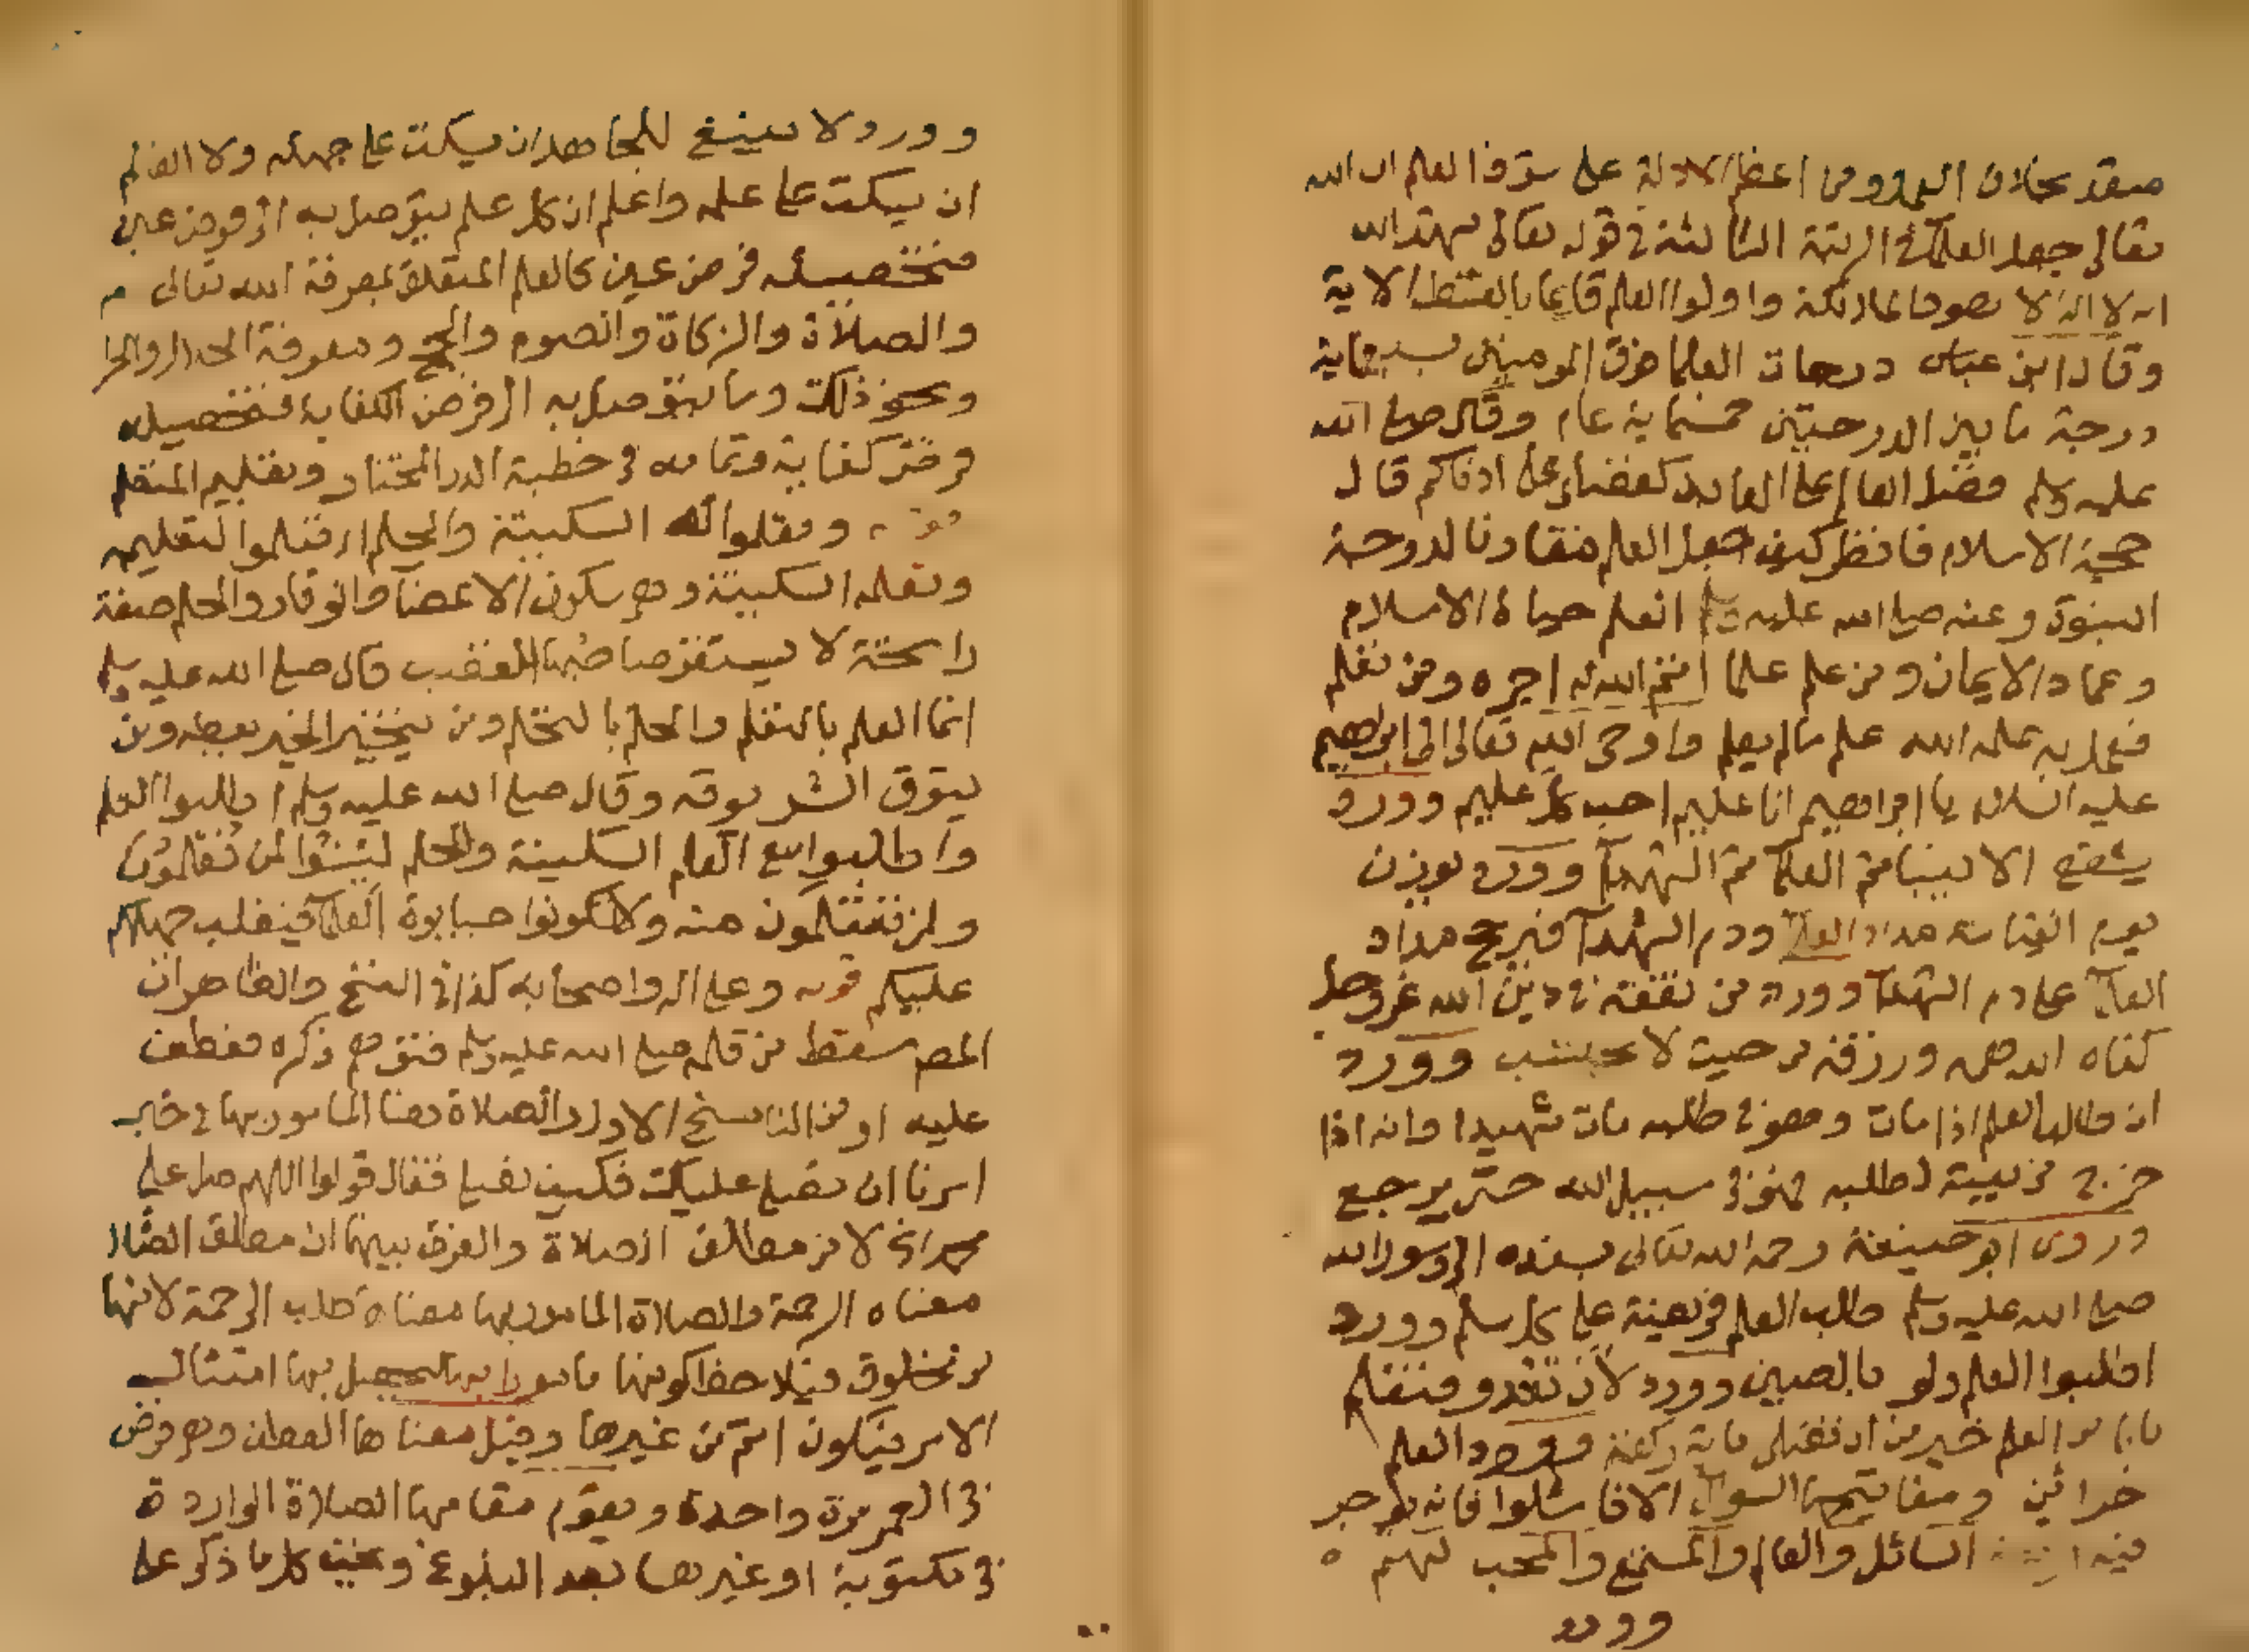 صفة بخلاف العمل ومن اعظم الادلة على شرف العلم ان الله
تعالى جعل العلمآ في الرتبة الثالثة في قوله تعالى شهد الله
انه لا اله الا هو والملائكة واولوا العلم قائما بالقسط الاية
وقال ابن عباس درجات العلما فوق المومنين بسبعماية
درجة ما بين الدرجتين خمسماية عام وقال صلى الله
عليه وسلم فضل العالم على العابد كفضلي على ادناكم قال
حجة الاسلام فانظر كيف جعل العلم مقارنا لدرجة
النبوة وعنه صلى الله عليه وسلم العلم حياة الاسلام
وعماد الايمان ومن علم علما اتم الله له اجره ومن تعلم
فعمل به علمه الله علم مالم يعلم واوحى الله تعالى الى ابراهيم
عليه السلام يا ابراهيم انا عليم احب كل عليم وورد
يشفع الانبيا ثم العلمآ ثم الشهدآ وورد يوزن
يوم القيامة مداد العلمآ ودم الشهدآ فيرجح مداد
العلمآ على دم الشهدآ وورد من تفقه في دين الله عز وجل
كفاه الله همه ورزقه من حيث لا يحتسب وورد
ان طالب العلم اذا مات وهو في طلبه مات شهيدا وانه اذا
خرج من بيته لطلبه فهو في سبيل الله حتى يرجع
وروى ابو حنيفة رحمه الله تعالى بسنده الى رسول الله
صلى الله عليه وسلم طلب العلم فريضة على كل مسلم وورد
اطلبوا العلم ولو بالصين وورد لأن تغدو فتتعلم
بابا من العلم خير من ان تصلى ماية ركعة وورد العلم
خزائن ومفاتيحها السوآل الا فاسئلوا فانه يوجر
فيه اربعة السائل والعالم والمستمع والمحب لهم
وورد
وورد لا ينبغي للجاهل ان يسكت على جهله ولا العالم
ان يسكت على علمه واعلم ان كل علم يتوصل به الى فرض عين
فتحصيله فرض عين كالعلم المتعلق بمعرفة الله تعالى
والصلاة والزكاة والصوم والحج ومعرفة الحلال والحرا
ونحو ذلك وما يتوصل به الى فرض الكفاية فتحصيله
فرض كفاية وتمامه في خطبة الدر المختار وتعليم المتعلم
قوله وتعلموا له السكينة والحلم اي تعلموا لتعليمه
وتعلمه السكينة وهي سكون الاعضآ والوقار والحلم صفة
راسخة لا يستفز صاحبها الغضب قال صلى الله عليه وسلم
انما العلم بالتعلم والحلم بالتحلم ومن يتخير الخير يعطه ومن
يتوق الشر يوقه وقال صلى الله عليه وسلم اطلبوا العلم
واطلبوا مع العلم السكينة والحلم لينوا لمن تعلمون
ولمن تتعلمون منه ولا تكونوا جبابرة العلمآ فيغلب جهلكم
عليكم قوله وعلى اله واصحابه كذا في النسخ والظاهر ان
المص سقط من قلمه صلى الله عليه وسلم فتوهم ذكره فعطف
عليه او من الناسخ الاول والصلاة هنا المامور بها في خبر
امرنا ان نصلى عليك فكيف نصلى فقال قولوا اللهم صل على
محمد الخ لا من مطلق الصلاة والفرق بينهما ان مطلق الصلا
معناه الرحمة والصلاة المامور بها معناه طلب الرحمة لانها
من مخلوق فيلاحظ كونها مامورا بها ليحصل بها امتثال
الامر فيكون اتم من غيرها وقيل معناها العطف وهو فرض
في العمر مرة واحدة ويقوم مقامها الصلاة الواردة
في مكتوبة او غيرها بعد البلوغ وتجب كلما ذكر على